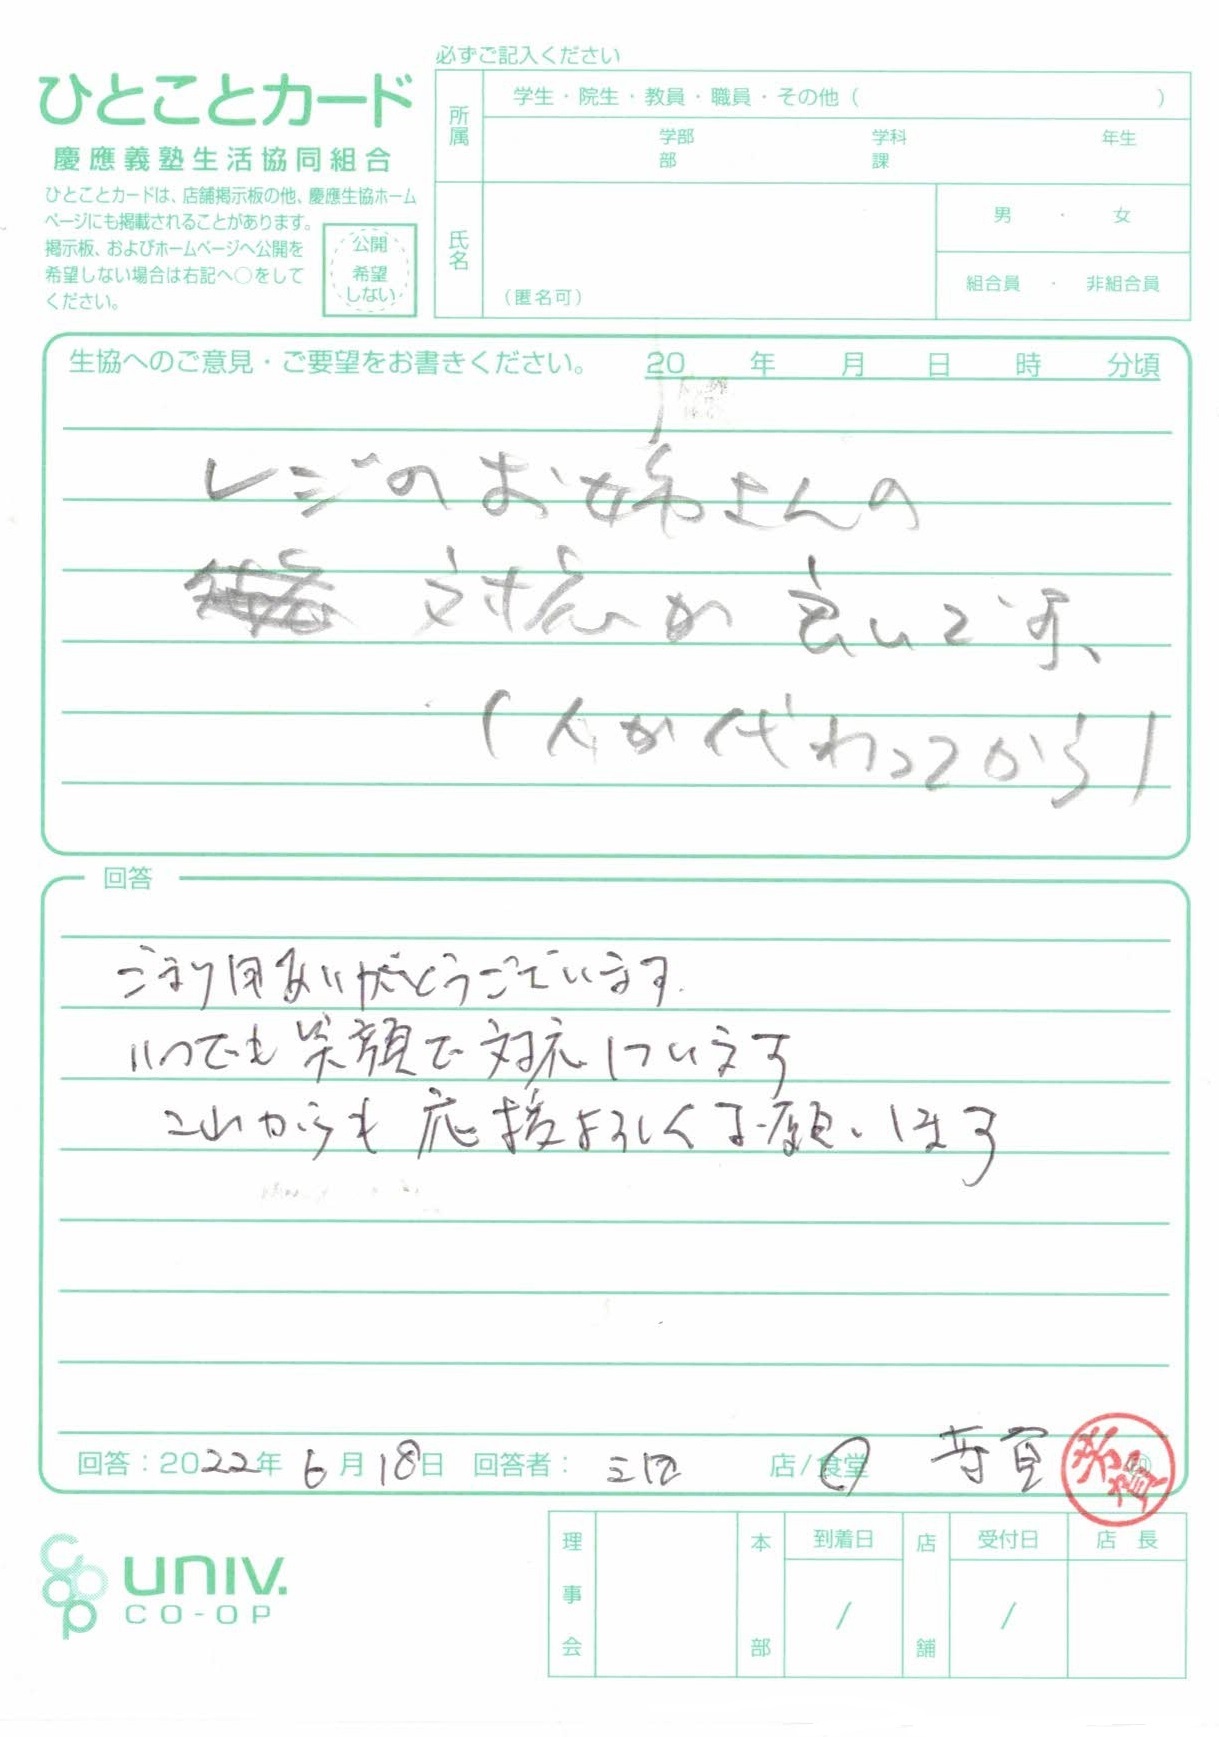 必ずご記入ください
ひとことカード
慶應義塾生活協同組合
ひとことカードは、店舗掲示板の他、慶應生協ホーム
ページにも掲載されることがあります。
掲示板、およびホームページへ公開を
希望しない場合は右記へ○をして
ください。
公開
希望
しない
所属
学生・院生・教員・職員・その他（　　）
学部 学科 年生
部 課
氏名
（匿名可）
男・女
組合員・非組合員
生協へのご意見・ご要望をお書きください。 20 年 月 日 時 分頃
レジのお姉さんの
対応が良いです、
(人が代わってから)
回答
ご利用ありがとうございます.
いつでも笑顔で対応しています
これからも応援よろしくお願いします
回答：2022年 6月18日 回答者： 三田 店/食堂
理事会
本部
到着日
/
店舗
受付日
/
店長
univ.
CO-OP